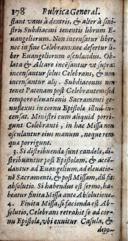 178 Rubricæ General.
stans vnus à dextris, & alter à sini-
stris Subdiaconi tenentis librum E-
uangeliorum. Non incensatur liber,
nec in fine Celebrans nec defertur li-
ber Euangeliorum osculandus. Ob-
lata & Altare incensatur ut suprà
incensantur solus Celebrans, & non
incensantur alij. Subdiaconus non
tenet Patenam post Celebrantem: ad
tempus eleuationis Sacramenti ge-
nuflexus in cornu Epistolæ illud in-
censat. Ministri cum aliquid porri-
gunt Celebranti, in hac Missa non
osculantur eius manum, neque rem
quæ porrigunt.
3. Si distribuenda sunt candelæ, di-
stribuuntur post Epistolam, & accē-
duntur ad Euangelium, ad eleuatio-
nem Sacramenti, & post Missam, dū fit
absolutio. Si habendus est sermo, ha-
beatur finita Missa ante Absolutionem.
4. Finita Missa, si facienda est Ab-
solutio, Celebrans retrahit se ad cor-
nu Epistolæ, vbi exuitur Casula, &
depo-